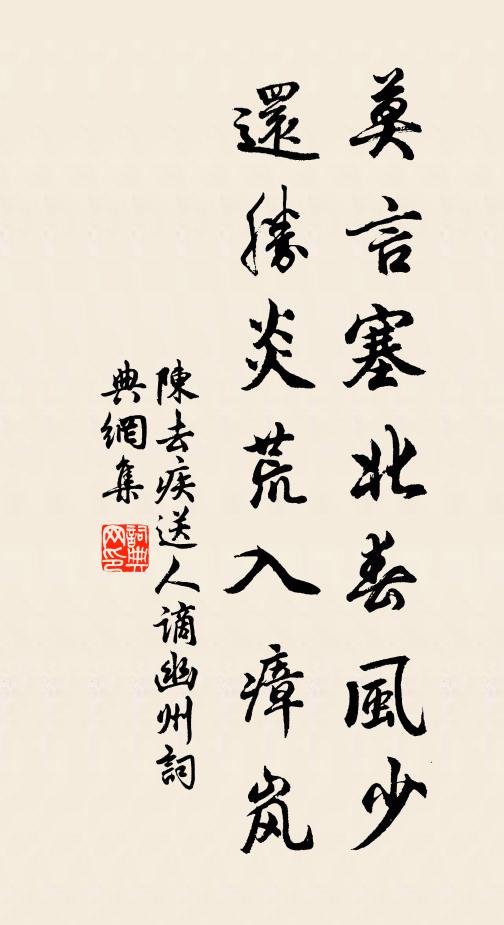 莫言塞北春風少
還勝炎荒入瘴岚
陳去疾送人謫幽州詞
典網集
詞典
网印